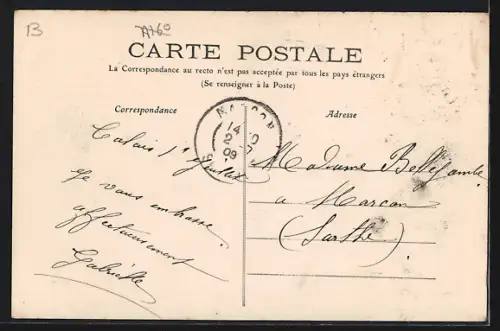 B
A160
CARTE POSTALE
La Correspondance au recto n'est pas acceptée par tous les pays étrangers
(Se renseigner à la Poste)
Correspondance
Adresse
14
2-7
09
Calais 1er Juillet
Je vous embrasse
affectueusement
Gabrielle
Madame Bellecombe
a Marcon
(Sarthe)